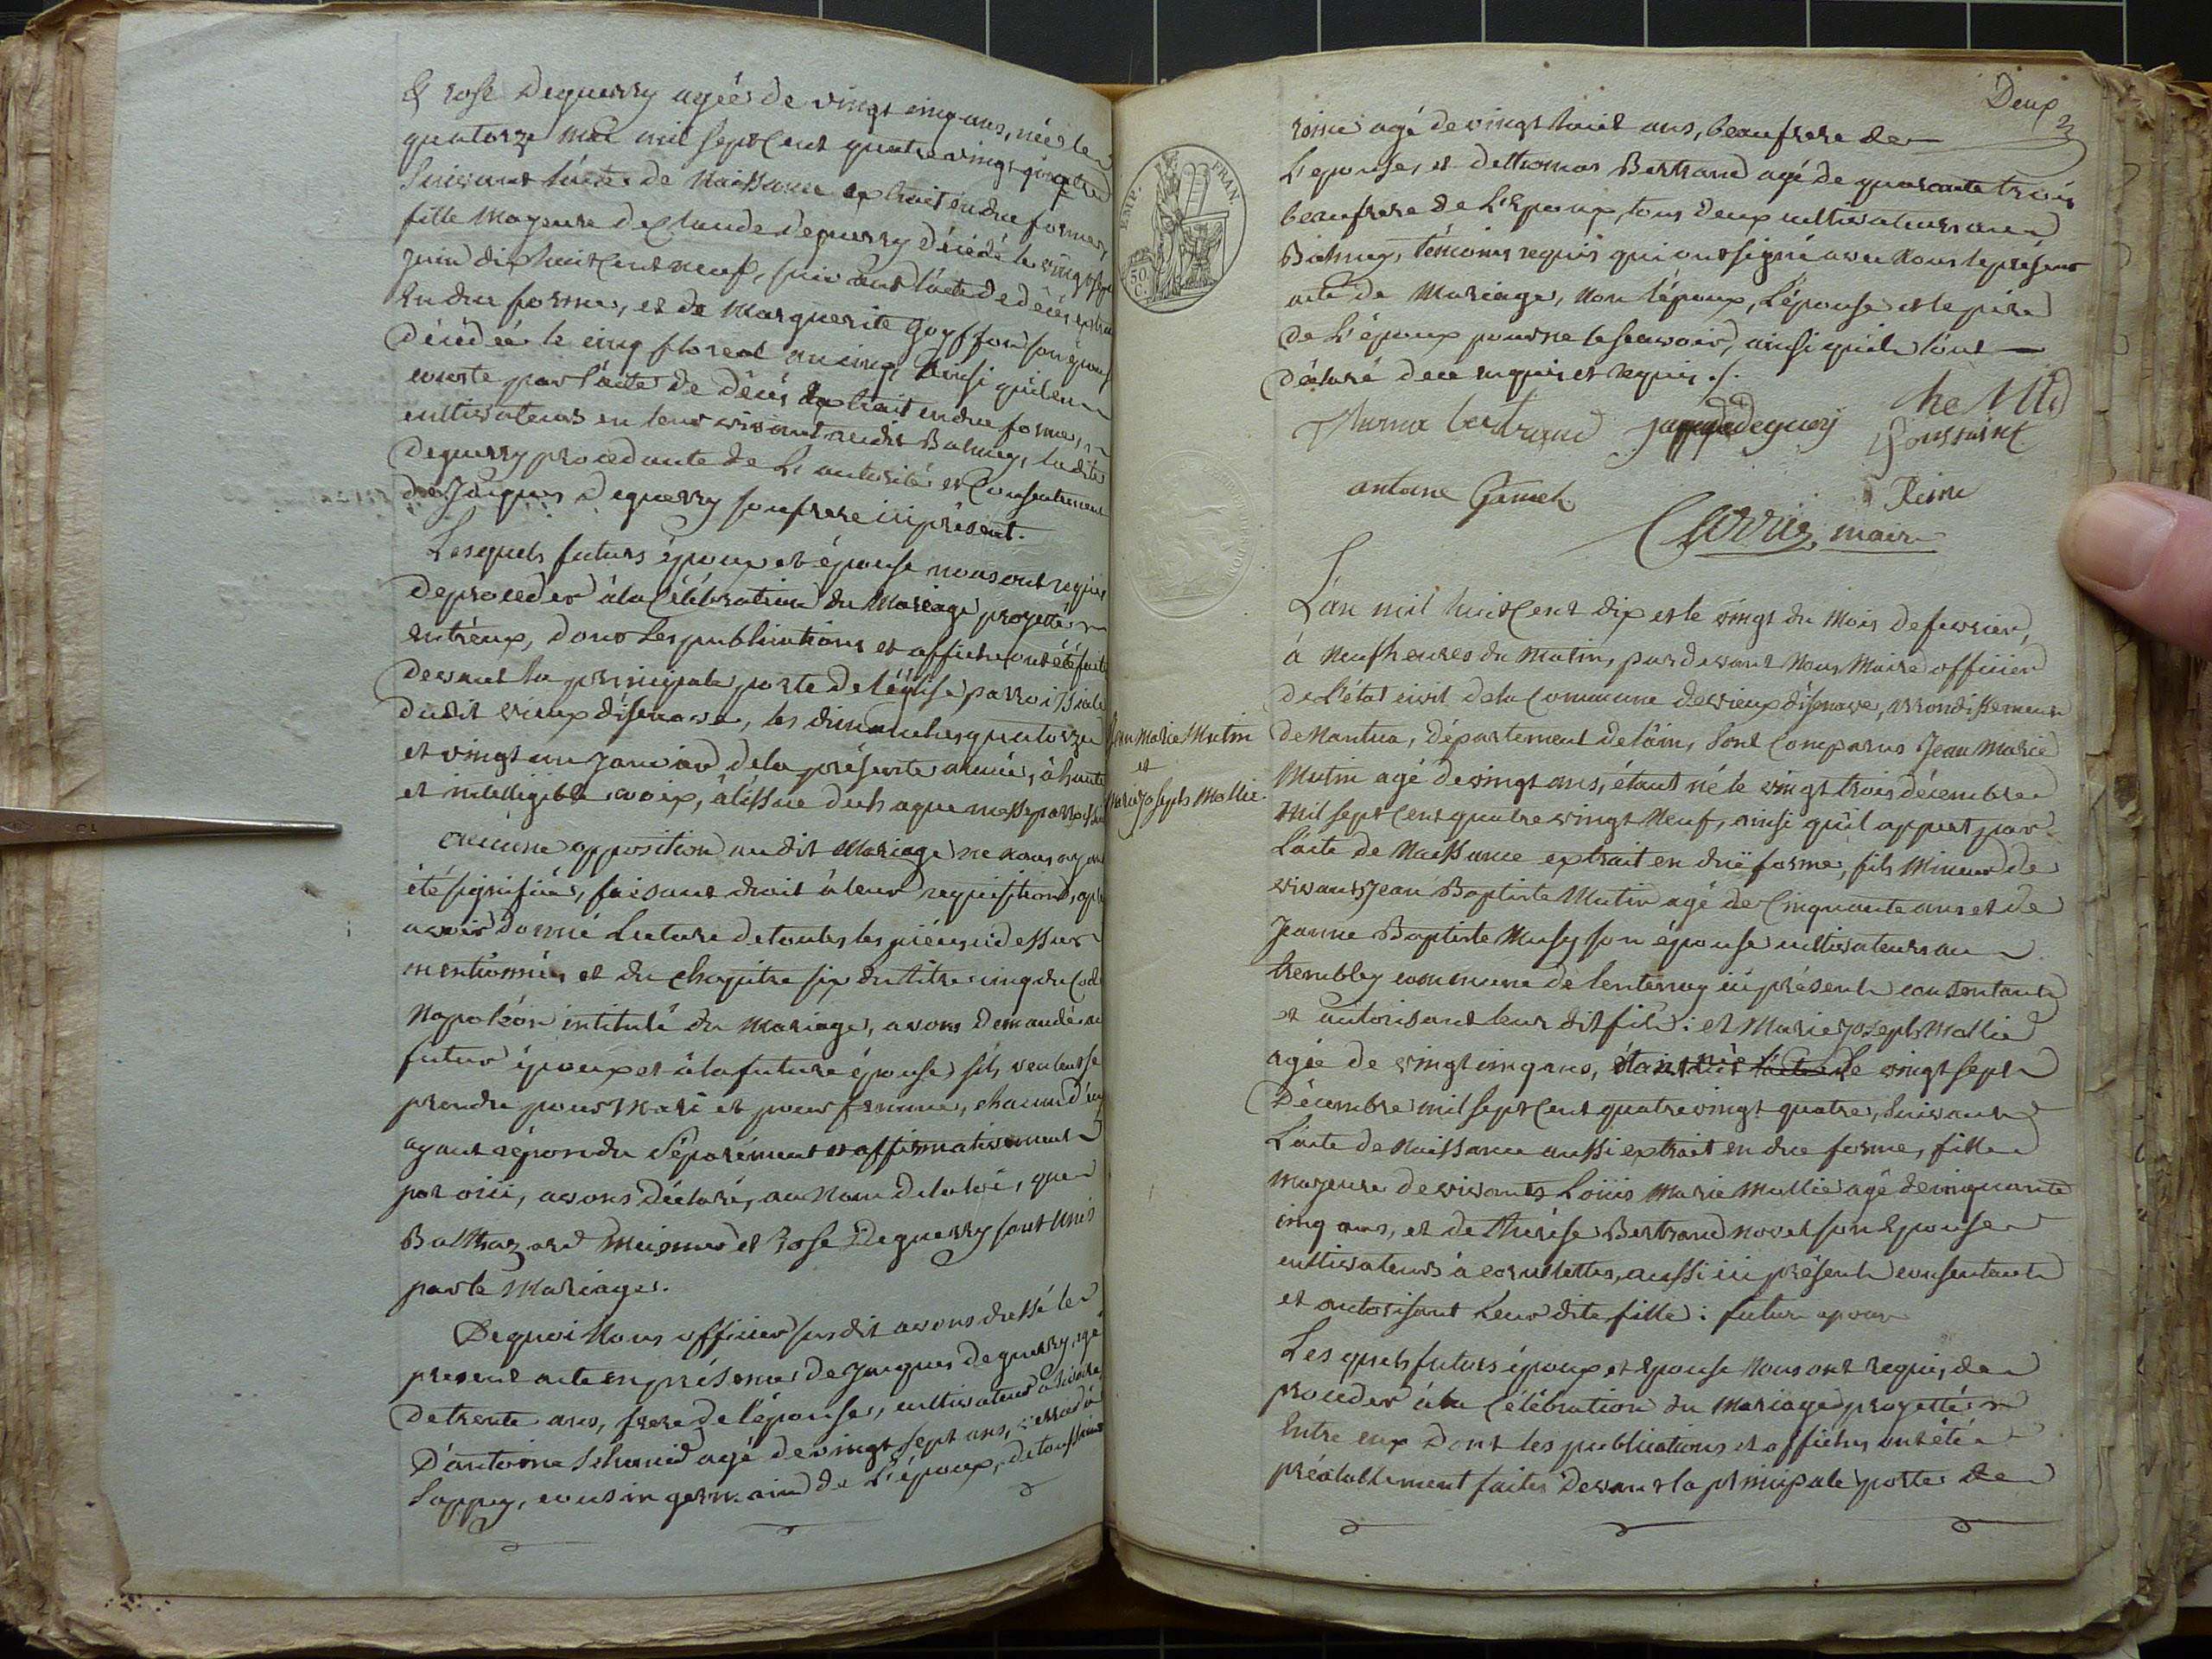 & rose Deguerry agée de vingt cinq ans, née le
quatorze mai mil sept Cent quatre vingt quatre
Suivant l'acte de Naissance extrait en due forme,
fille Majeure de Claude deguerry décédé le vingt sept
juin dix huit Cent neuf, suivant l'acte de décès extrait
en due forme, et de Marguerite Goyffon son épouse
décédée le cinq floreal an cinq, Ainsi qu'il en
conste par l'acte de décès extrait en due forme,
cultivateurs en leur vivant audit Balmey, ladite
Deguerry procedante de L'autorité et Consentement
de Jaques Deguerry son frere ici présent.
Lesquels futurs époux et épouse nous ont requis
de proceder à la Célébration du Mariage projetté
entr'eux, dont Les publications et affiches ont été faites
devant la principale porte de l'église parroissiale
dudit vieux disenave, les dimanches quatorze
et vingt un Janvier de la présente année, à haute
et intelligible voix, à l'issue de chaque messe parroissiale
aucune opposition audit Mariage ne nous ayant
été signifiée, faisant droit à leur requisition, après
avoir donné Lecture de toutes les pièces ci dessus
mentionnées et du Chapitre six du titre cinq du Code
Napoléon intitulé du Mariage, avons demandé au
futur époux et à la future épouse s'ils veulent se
prendre pour Mari et pour femme, chacun d'eux
ayant répondu Séparément et affirmativement
par oüi, avons déclaré, au Nom de la loi, que
Balthazard Meisner et Rose Deguerry sont unis
par le Mariage.
De quoi Nous officier susdit avons dressé le
present acte en présence de Jaques Deguerry, agé
de trente ans, frere de l'épouse, cultivateur
D'antoine agé de vingt sept ans,
Lappey, cousin germain de L'époux, de toussaint
Deux
2
EMP. FRAN.
50 C.
reine agé de vingt huit ans, beaufrere de
L'epouse, et de thomas Bertrand agé de quarante trois
beaufrere de L'Epoux, tous deux cultivateurs au
Balmey, témoins requis qui ont signé avec Nous le présent
acte de Mariage, non l'époux, L'épouse et le père
de L'époux pour ne le scavoir, ainsi qu'ils l'ont
déclaré de ce enquis et requis ./.
Thoma bertrand jaque deguery
Toussaint
antoine
Reine
maire
L'an mil huit Cent dix et le vingt du Mois de fevrier,
à Neuf heures du Matin, par devant Nous Maire officier
de L'état civil de la Commune de vieux disenave, arrondissement
de Nantua, département de l'ain, Sont Comparus Jean Marie
Jean Marie Mutin
et
Marie Joseph Mollie
Mutin agé de vingt ans, étant né le vingt trois décembre
Mil sept Cent quatre vingt Neuf, ainsi qu'il appert par
L'acte de Naissance extrait en düe forme, fils Mineur de
vivants Jean Baptiste Mutin agé de Cinquante ans et de
Jeanne Baptiste Musy son épouse cultivateurs au
tremblay commune de lentenay ici présents consentants
et autorisant leur dit fils : et Marie Joseph Mollie
agée de vingt cinq ans, étant née le vingt sept
Décembre mil sept Cent quatre vingt quatre, Suivant
L'acte de Naissance aussi extrait en due forme, fille
Majeure de vivants Loüis Marie Mollie agé de cinquante
cinq ans, et de thérése Bertrand Novet son Epouse
cultivateurs à cornelettes, aussi ici présents consentants
et autorisant Leur dite fille : futur epoux
Les quels futurs époux et épouse Nous ont requis de
proceder à la Célébration du Mariage projetté
Entre eux Dont les publications et affiches ont été
préalablement faites Devant la principale porte de